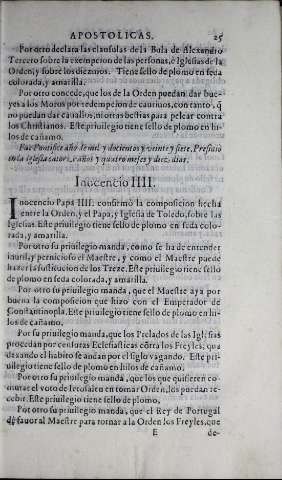 APOSTOLICAS. 25
Por otro declara las clausulas de la Bula de Alexandro
Tercero sobre la exempcion de las personas, è Iglesias de la
Orden, y sobre los diezmos. Tiene sello de plomo en seda
colorada, y amarilla.
Por otro concede, que los de la Orden puedan dar bue-
yes a los Moros por redempcion de cautiuos, con tanto, q̃
no puedan dar cauallos, ni otras bestias para pelear contra
los Christianos. Este priuilegio tiene sello de plomo en hi-
los de cañamo.
Fue Pontifice año de mil y docientos y veinte y siete. Presidio
en la Iglesia catorze años y quatro meses y diez dias.
Inocencio IIII.
Inocencio Papa IIII. confirmò la composicion hecha
entre la Orden, y el Papa, y Iglesia de Toledo, sobre las
Iglesias. Este priuilegio tiene sello de plomo en seda colo-
rada, y amarilla.
Por otro su priuilegio manda, como se ha de entender
inutil, y pernicioso el Maestre, y como el Maestre puede
hazer la sustitucion de los Treze. Este priuilegio tiene sello
de plomo en seda colorada, y amarilla.
Por otro su priuilegio manda, que el Maestre aya por
buena la composicion que hizo con el Emperador de
Constantinopla. Este priuilegio tiene sello de plomo en hi-
los de cañamo.
Por su priuilegio manda, que los Prelados de las Iglesias
procedan por censuras Eclesiasticas cõtra los Freyles, que
dexando el habito se andan por el siglo vagando. Este pri-
uilegio tiene sello de plomo en hilos de cañamo.
Por otro su priuilegio manda, que los que quisieren co-
mutar el voto de Ierusalen en tomar Orden, los puedan re-
cebir. Este priuilegio tiene sello de plomo.
Por otro su priuilegio manda, que el Rey de Portugal
dè fauor al Maestre para tornar a la Orden los Freyles, que
E de-